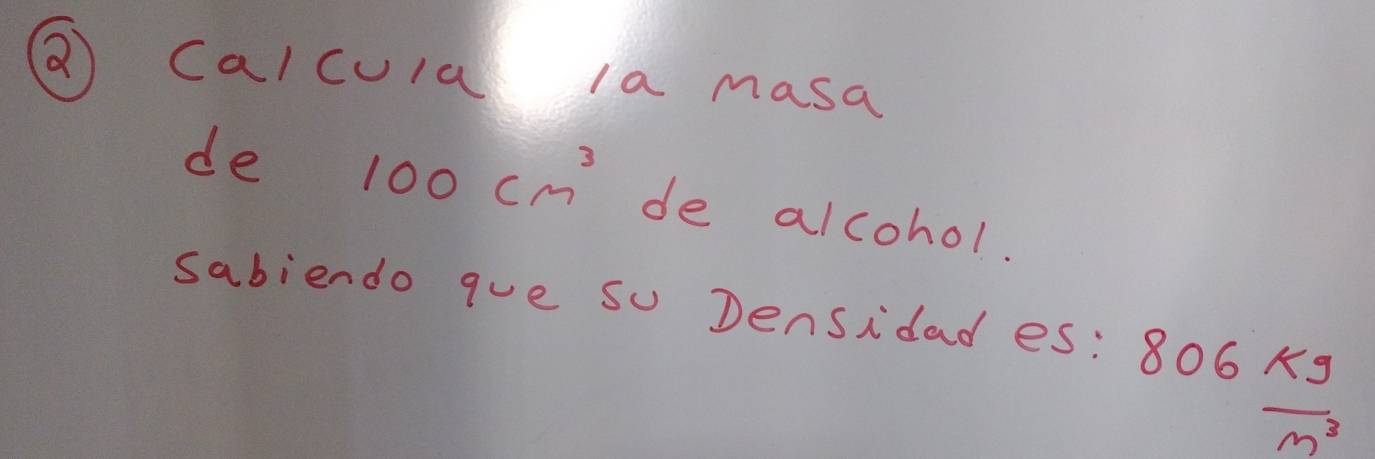 ② Calcula la masa
de 100 cm³ de alcohol.
sabiendo que su Densidad es: 806 Kg/m³